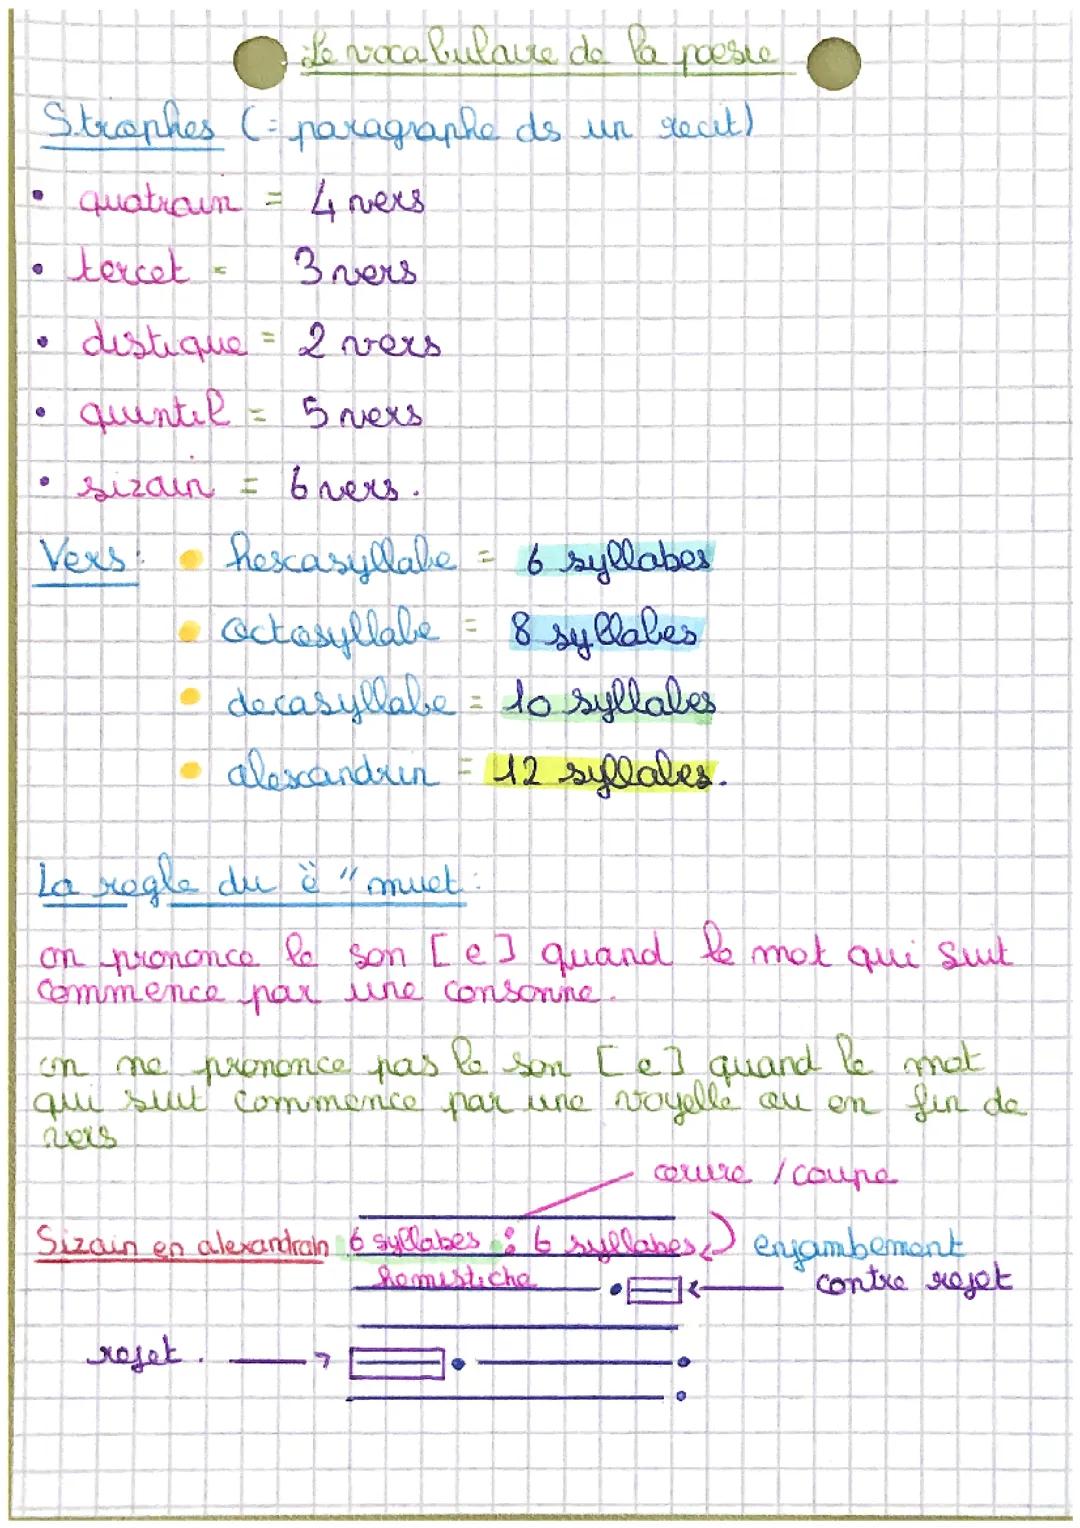 Le vocabulaire de la poesie
Strophes (= paragraphe ds un recit)
• quatrain = 4 vers
• tercet = 3 vers
• distique = 2 vers
• quintil = 5 vers
• sizain = 6 vers.
Vers: • hexasyllabe = 6 syllabes
• octosyllabe = 8 syllabes
• decasyllabe = 10 syllabes
• alexandrin = 12 syllabes.
La regle du ë " muet:
on prononce le son [e] quand le mot qui suit
commence par une consonne.
on ne prononce pas le son [e] quand le mot
qui suit commence par une voyelle ou en fin de
vers
cesure / coupe
Sizain en alexandrain 6 syllabes : 6 syllabes enjambement
hemistiche contre rejet
rejet.